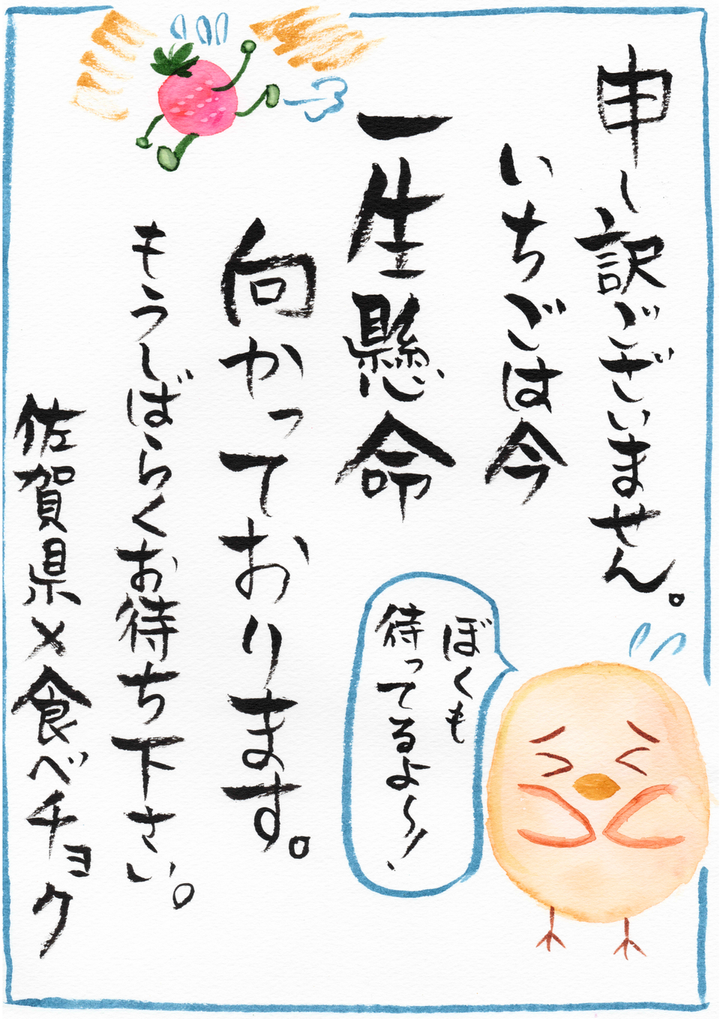 申し訳ございません。
いちごは今
一生懸命
向かっております。
もうしばらくお待ち下さい。
佐賀県×食べチョク
ぼくも
待ってるよ〜！